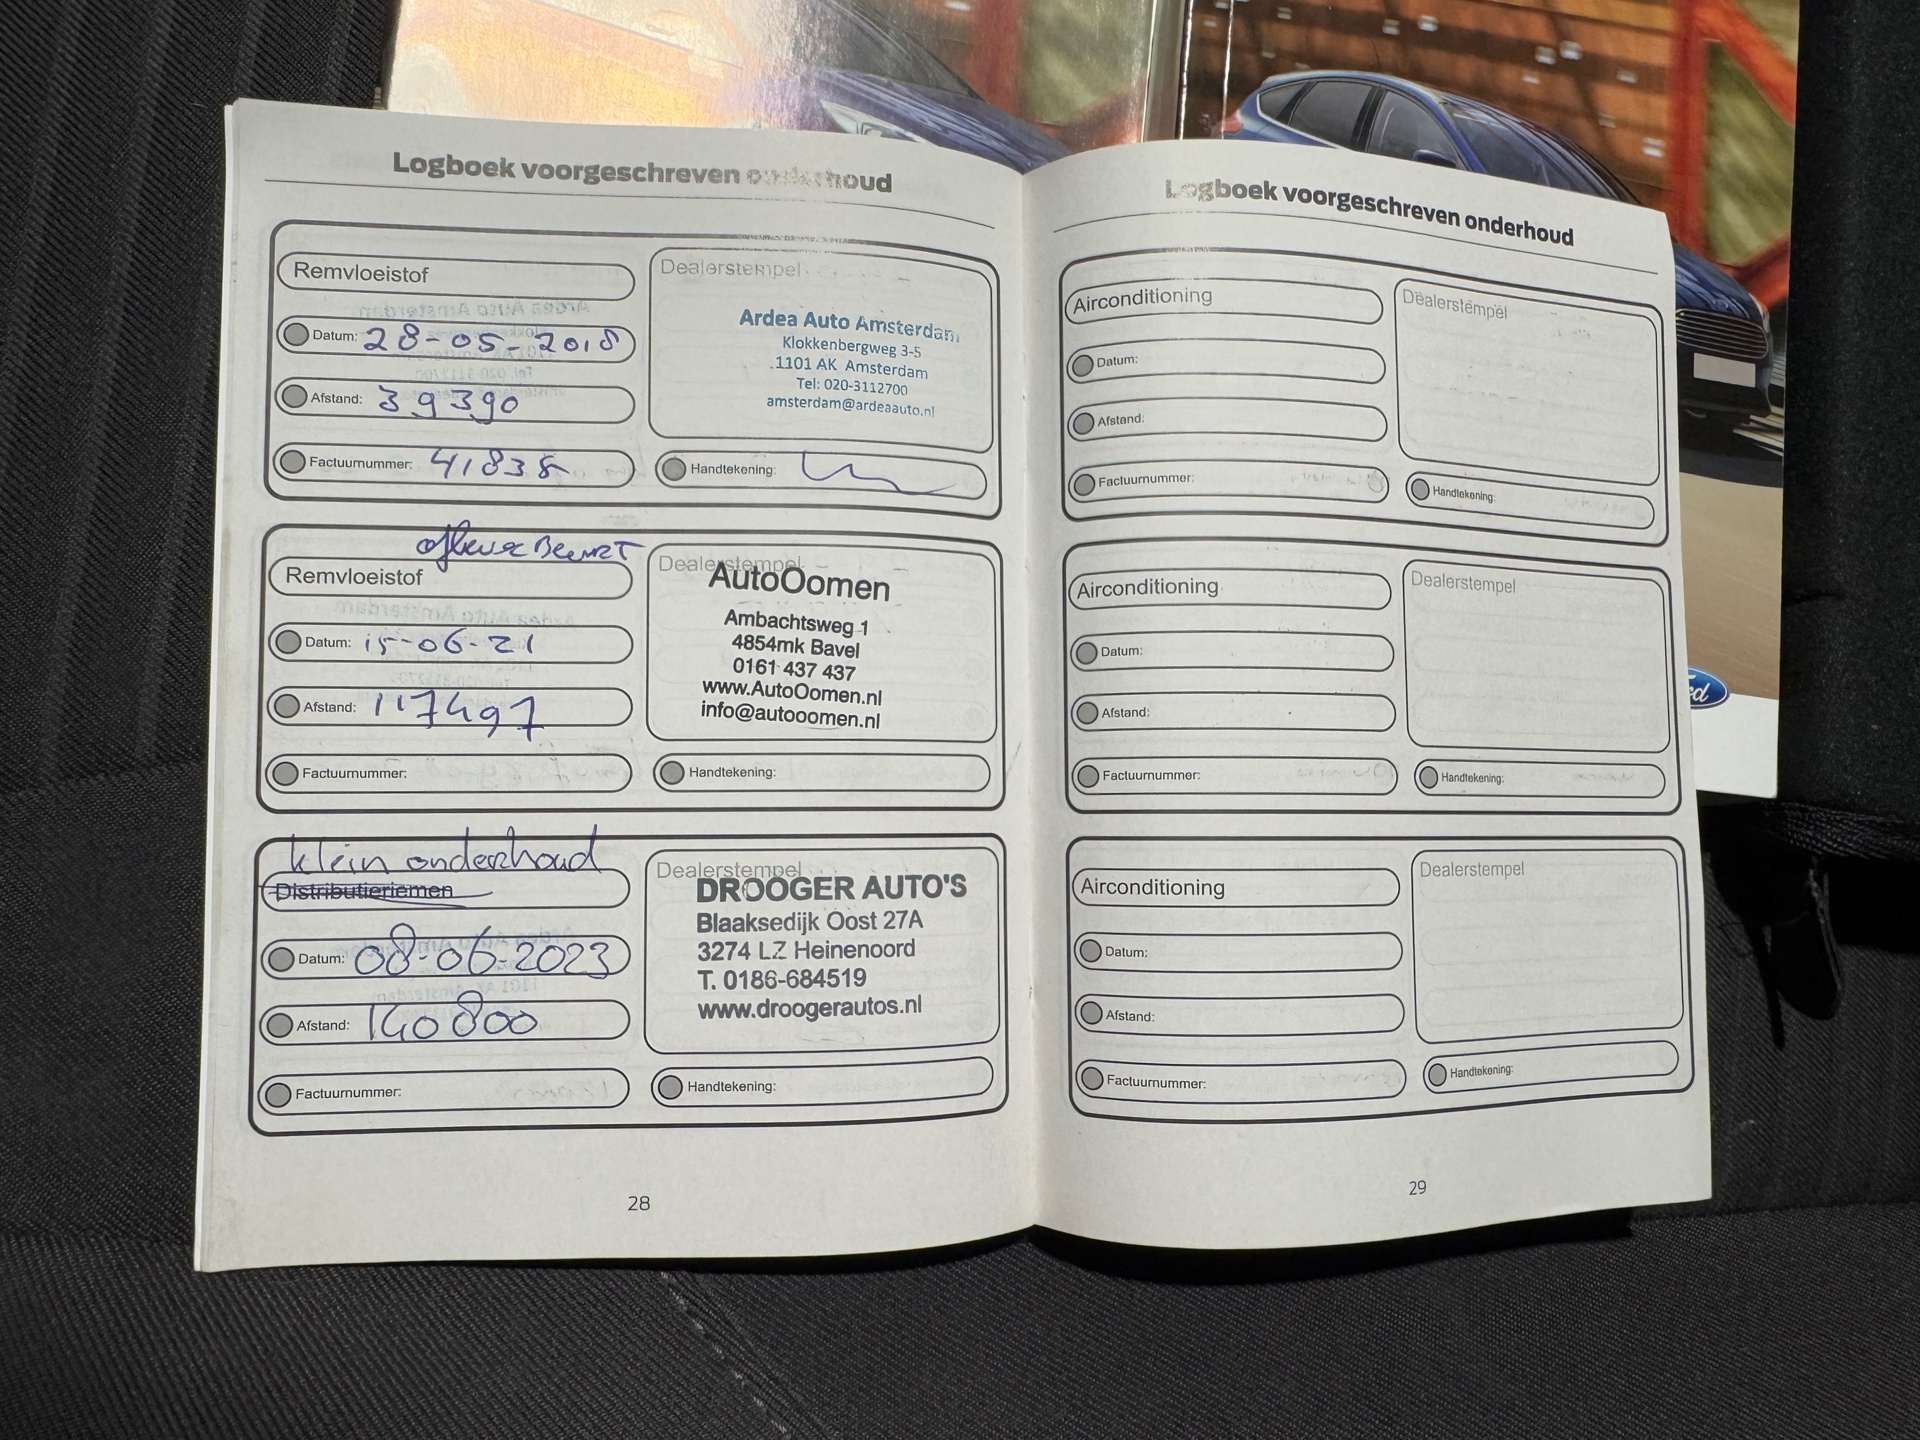 Logboek voorgeschreven onderhoud
Remvloeistof
Datum: 28-05-2018
Afstand: 39390
Factuurnummer: 41838
Dealerstempel
Ardea Auto Amsterdam
Klokkenbergweg 3-5
1101 AK Amsterdam
Tel: 020-3112700
amsterdam@ardeaauto.nl
Handtekening:
Beurt
Remvloeistof
Datum: 15-06-21
Afstand: 117497
Factuurnummer:
Dealerstempel
AutoOomen
Ambachtsweg 1
4854mk Bavel
0161 437 437
www.AutoOomen.nl
info@autooomen.nl
Handtekening:
klein onderhoud
Distributieriemen
Datum: 08-06-2023
Afstand: 140800
Factuurnummer:
Dealerstempel
DROOGER AUTO'S
Blaaksedijk Oost 27A
3274 LZ Heinenoord
T. 0186-684519
www.droogerautos.nl
Handtekening:
28
Logboek voorgeschreven onderhoud
Airconditioning
Datum:
Afstand:
Factuurnummer:
Dealerstempel
Handtekening:
Airconditioning
Datum:
Afstand:
Factuurnummer:
Dealerstempel
Handtekening:
Airconditioning
Datum:
Afstand:
Factuurnummer:
Dealerstempel
Handtekening:
29